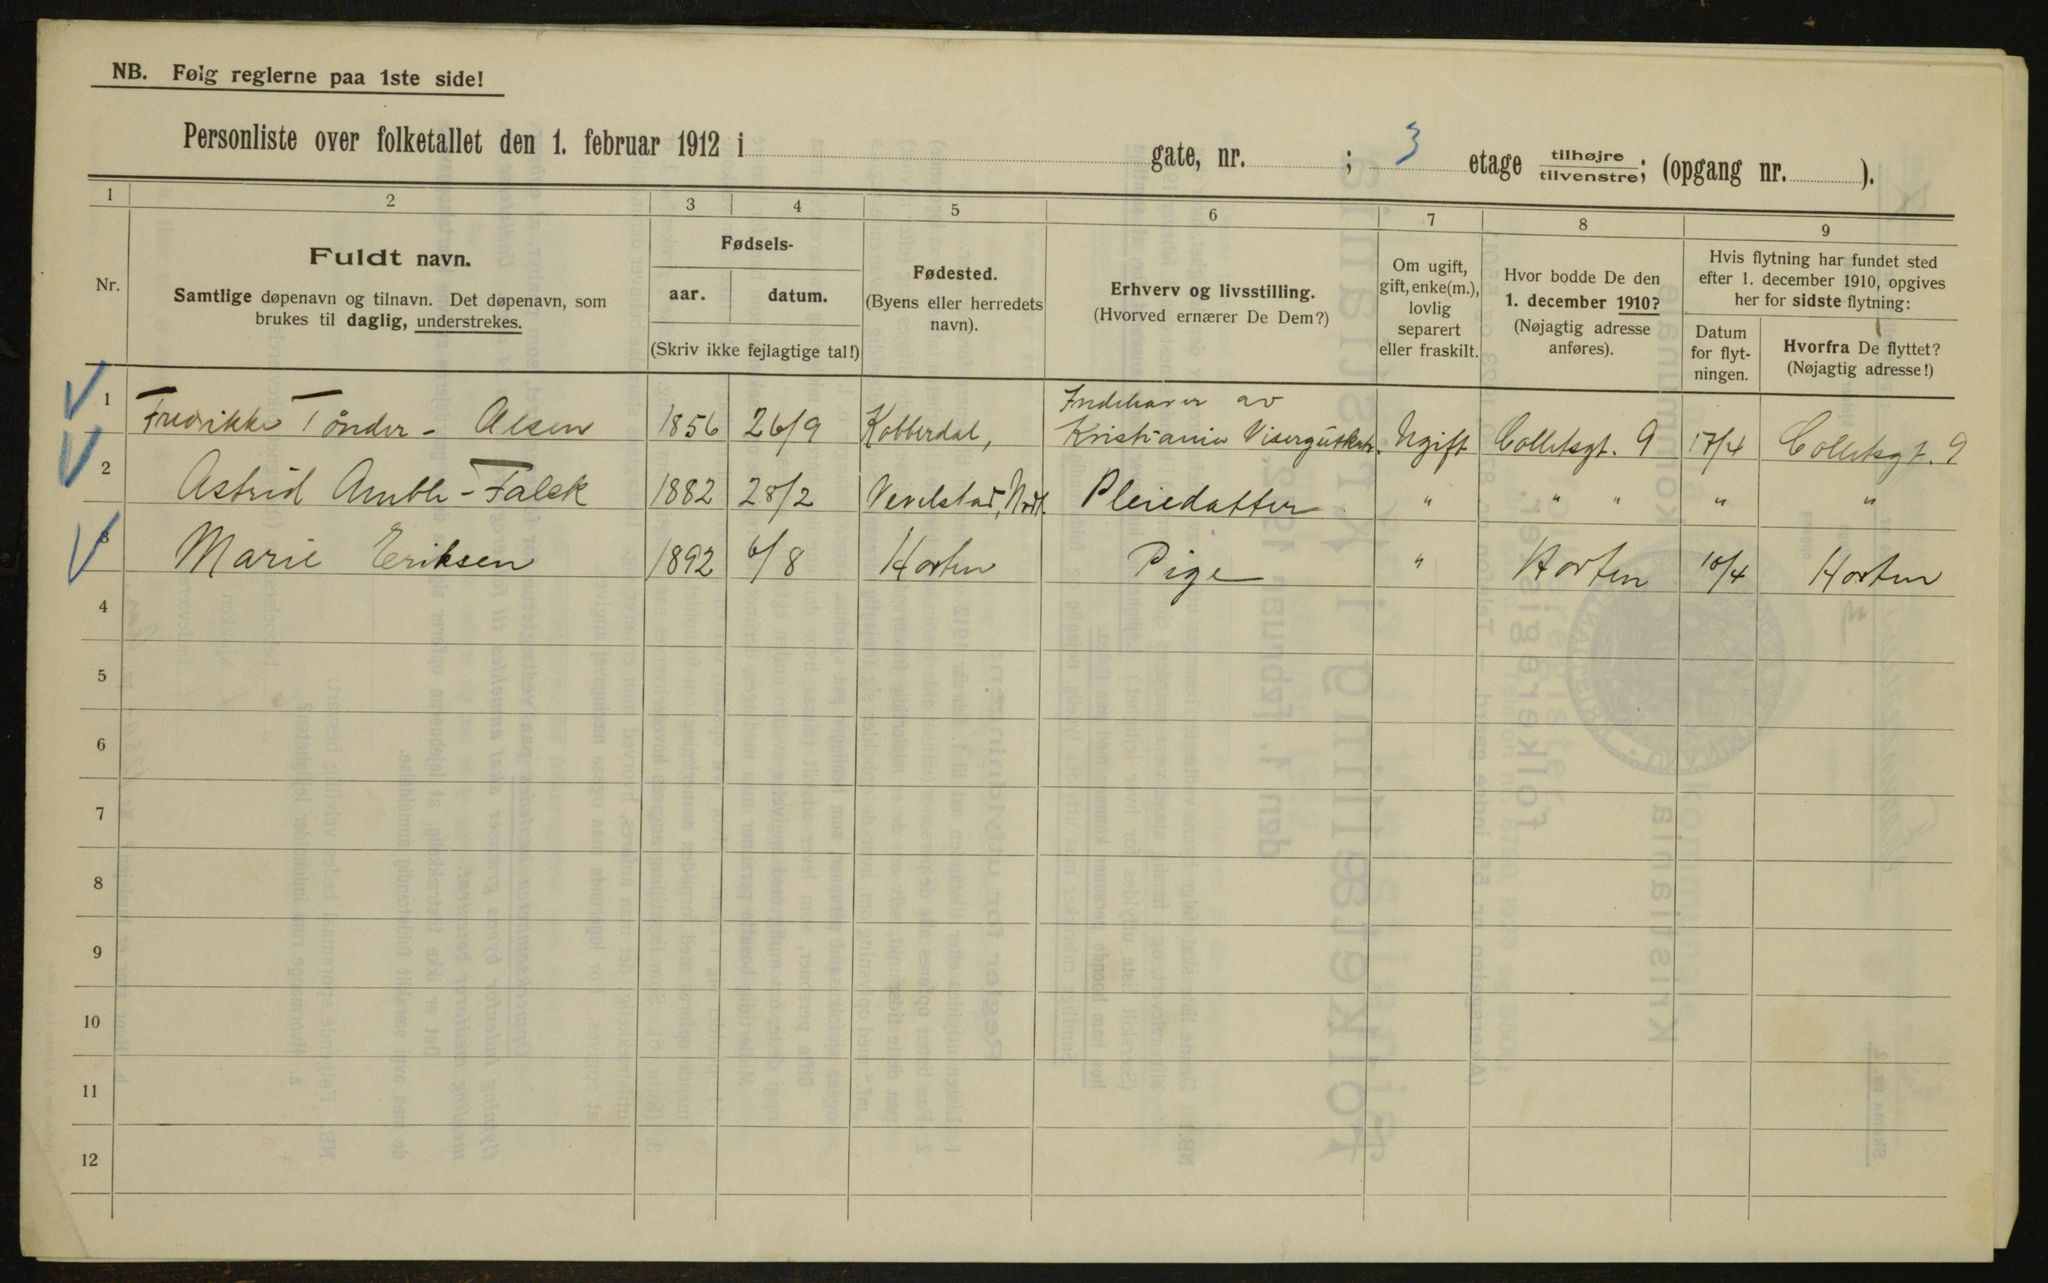 NB. Følg reglerne paa 1ste side!
Personliste over folketallet den 1. februar 1912 i gate, nr. ; 3 etage tilhøjre tilvenstre; (opgang nr. ).
1 2 3 4 5 6 7 8 9
Nr.
Fuldt navn.
Samtlige døpenavn og tilnavn. Det døpenavn, som
brukes til daglig, understrekes.
Fødsels-
aar. datum.
(Skriv ikke fejlagtige tal!)
Fødested.
(Byens eller herredets
navn).
Erhverv og livsstilling.
(Hvorved ernærer De Dem?)
Om ugift,
gift, enke(m.),
lovlig
separert
eller fraskilt.
Hvor bodde De den
1. december 1910?
(Nøjagtig adresse
anføres).
Hvis flytning har fundet sted
efter 1. december 1910, opgives
her for sidste flytning:
Datum
for flyt-
ningen.
Hvorfra De flyttet?
(Nøjagtig adresse!)
1 Fredrikke Tønder - Olsen 1856 26/9 Kobberdal, Indehaver av
Kristiania Ugift Colletsgt. 9 17/4 Colletsgt. 9
2 Astrid Amble - Falck 1882 28/2 Vevelstad, Nrdl. Pleiedatter " " " " "
3 Marie Eriksen 1892 6/8 Horten Pige " Horten 18/4 Horten
4
5
6
7
8
9
10
11
12